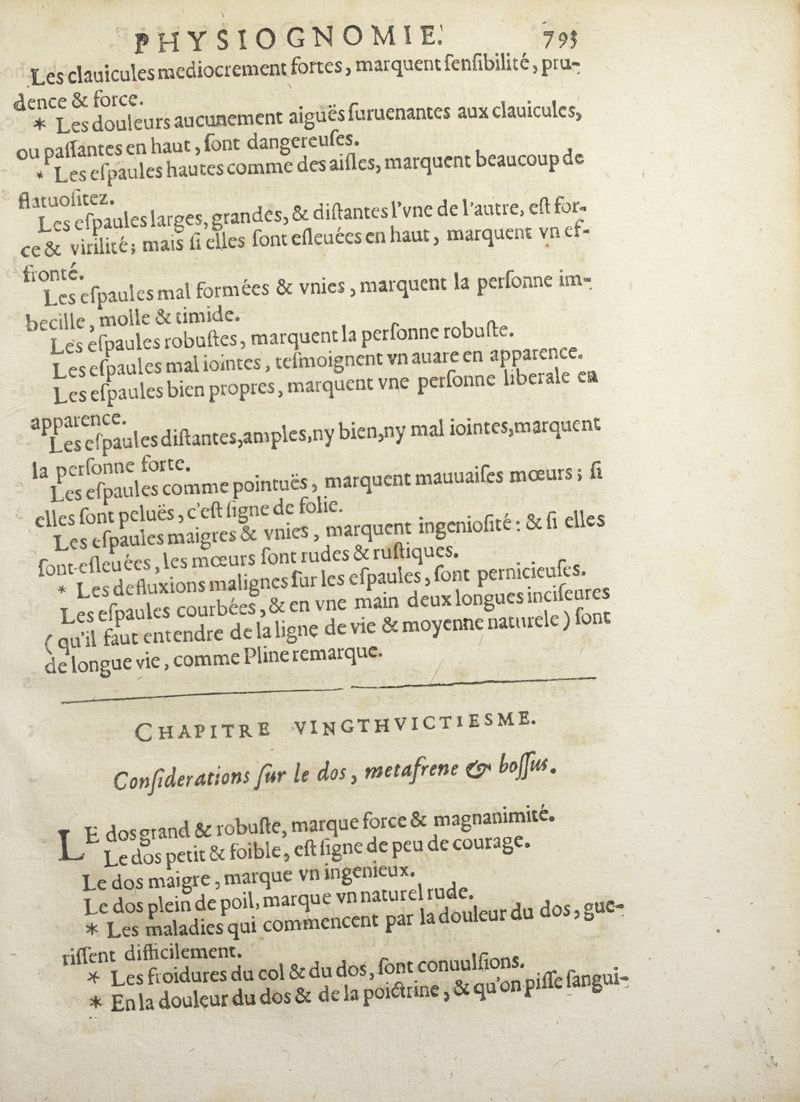 PHYSIOGNOMIE. 795
Les clauicules mediocrement fortes, marquent ſenſibilité, pru-
dence & force.
* Les douleurs aucunement aiguës ſuruenantes aux clauicules,
ou paſſantes en haut, ſont dangereuſes.
* Les eſpaules hautes comme des aiſles, marquent beaucoup de
flatuoſitez.
Les eſpaules larges, grandes, & diſtantes l'vne de l'autre, eſt for-
ce & virilité; mais ſi elles ſont eſleuées en haut, marquent vn ef-
fronté.
Les eſpaules mal formées & vnies, marquent la perſonne im-
becille, molle & timide.
Les eſpaules robuſtes, marquent la perſonne robuſte.
Les eſpaules mal iointes, teſmoignent vn auare en apparence.
Les eſpaules bien propres, marquent vne perſonne liberale en
apparence.
Les eſpaules diſtantes, amples, ny bien, ny mal iointes, marquent
la perſonne forte.
Les eſpaules comme pointuës, marquent mauuaiſes mœurs; ſi
elles ſont peluës, c'eſt ſigne de folie.
Les eſpaules maigres & vnies, marquent ingenioſité: & ſi elles
ſont eſleuées, les mœurs ſont rudes & ruſtiques.
* Les defluxions malignes ſur les eſpaules, ſont pernicieuſes.
Les eſpaules courbées, & en vne main deux longues inciſeures
(qu'il faut entendre de la ligne de vie & moyenne naturele) ſont
de longue vie, comme Pline remarque.
CHAPITRE VINGTHVICTIESME.
Conſiderations ſur le dos, metafrene & boſſus.
LE dos grand & robuſte, marque force & magnanimité.
Le dos petit & foible, eſt ſigne de peu de courage.
Le dos maigre, marque vn ingenieux.
Le dos plein de poil, marque vn naturel rude.
* Les maladies qui commencent par la douleur du dos, gue-
riſſent difficilement.
* Les froidures du col & du dos, ſont conuulſions.
* En la douleur du dos & de la poictrine, & qu'on piſſe ſangui-